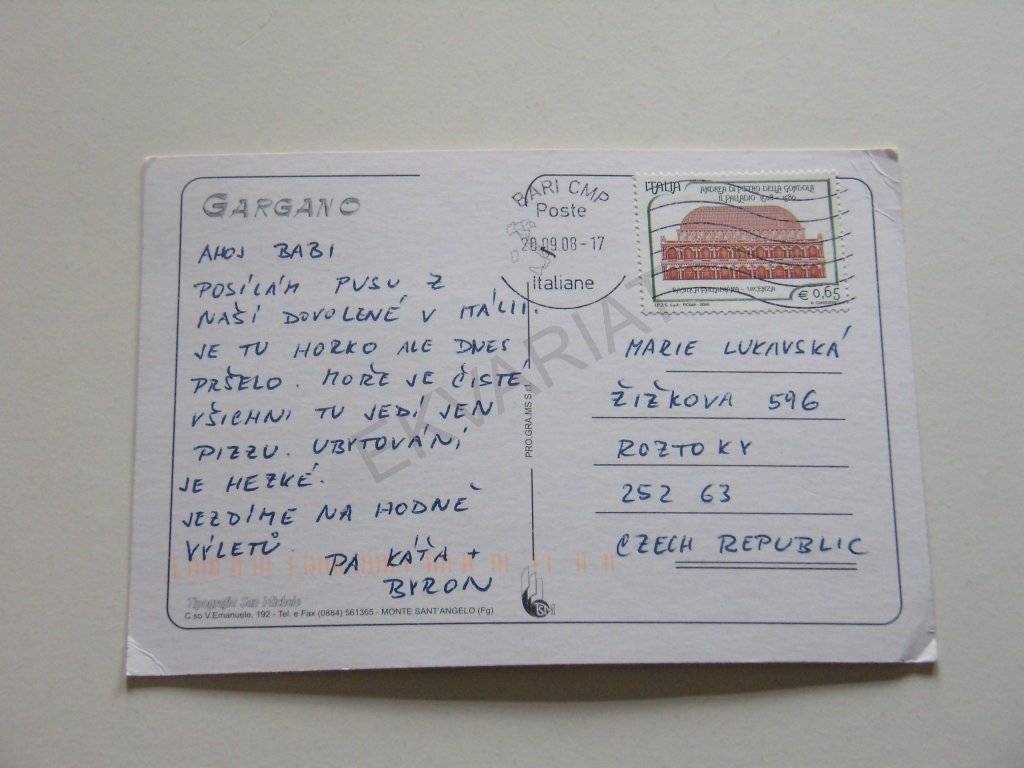 GARGANO
AHOJ BABI
POSÍLÁM PUSU Z
NAŠÍ DOVOLENÉ V ITÁLII.
JE TU HORKO ALE DNES
PRŠELO. MOŘE JE ČISTÉ
VŠICHNI TU JEDÍ JEN
PIZZU. UBYTOVÁNÍ
JE HEZKÉ.
JEZDÍME NA HODNĚ
VÝLETŮ.
PA KÁŤA +
BYRON
Tipografia San Michele
C.so V.Emanuele, 192 - Tel. e Fax (0884) 561365 - MONTE SANT'ANGELO (Fg)
PRO.GRA.MS S.r.l.
TSM
BARI CMP
Poste
20.09.08-17
Italiane
ITALIA
ANDREA DI PIETRO DELLA GONDOLA
IL PALLADIO 1508 - 1580
BASILICA PALLADIANA - VICENZA
€ 0,65
MARIE LUKAVSKÁ
ŽIŽKOVA 596
ROZTOKY
252 63
CZECH REPUBLIC
EKVARIAT